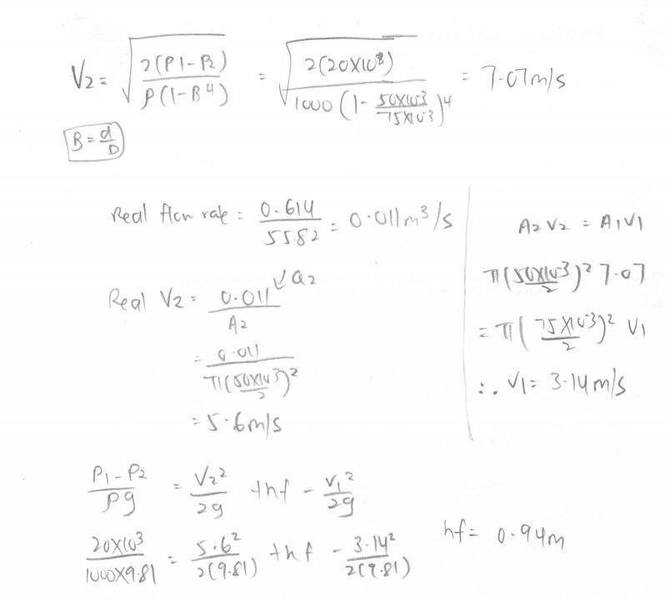 V2 = √(2(P1-P2) / ρ(1-B⁴)) = √(2(20×10³) / 1000(1 - 50×10⁻³/75×10⁻³)⁴) = 7.07m/s
B = d/D
Real flow rate = 0.614/55.82 = 0.011m³/s
Real V2 = 0.011/A2 ↙ Q2
= 0.011 / π(50×10⁻³/2)²
= 5.6m/s
A2 V2 = A1 V1
π(50×10⁻³/2)² 7.07
= π(75×10⁻³/2)² V1
∴ V1 = 3.14m/s
P1-P2/ρg = V2²/2g + hf - V1²/2g
20×10³/1000×9.81 = 5.6²/2(9.81) + hf - 3.14²/2(9.81)
hf = 0.94m